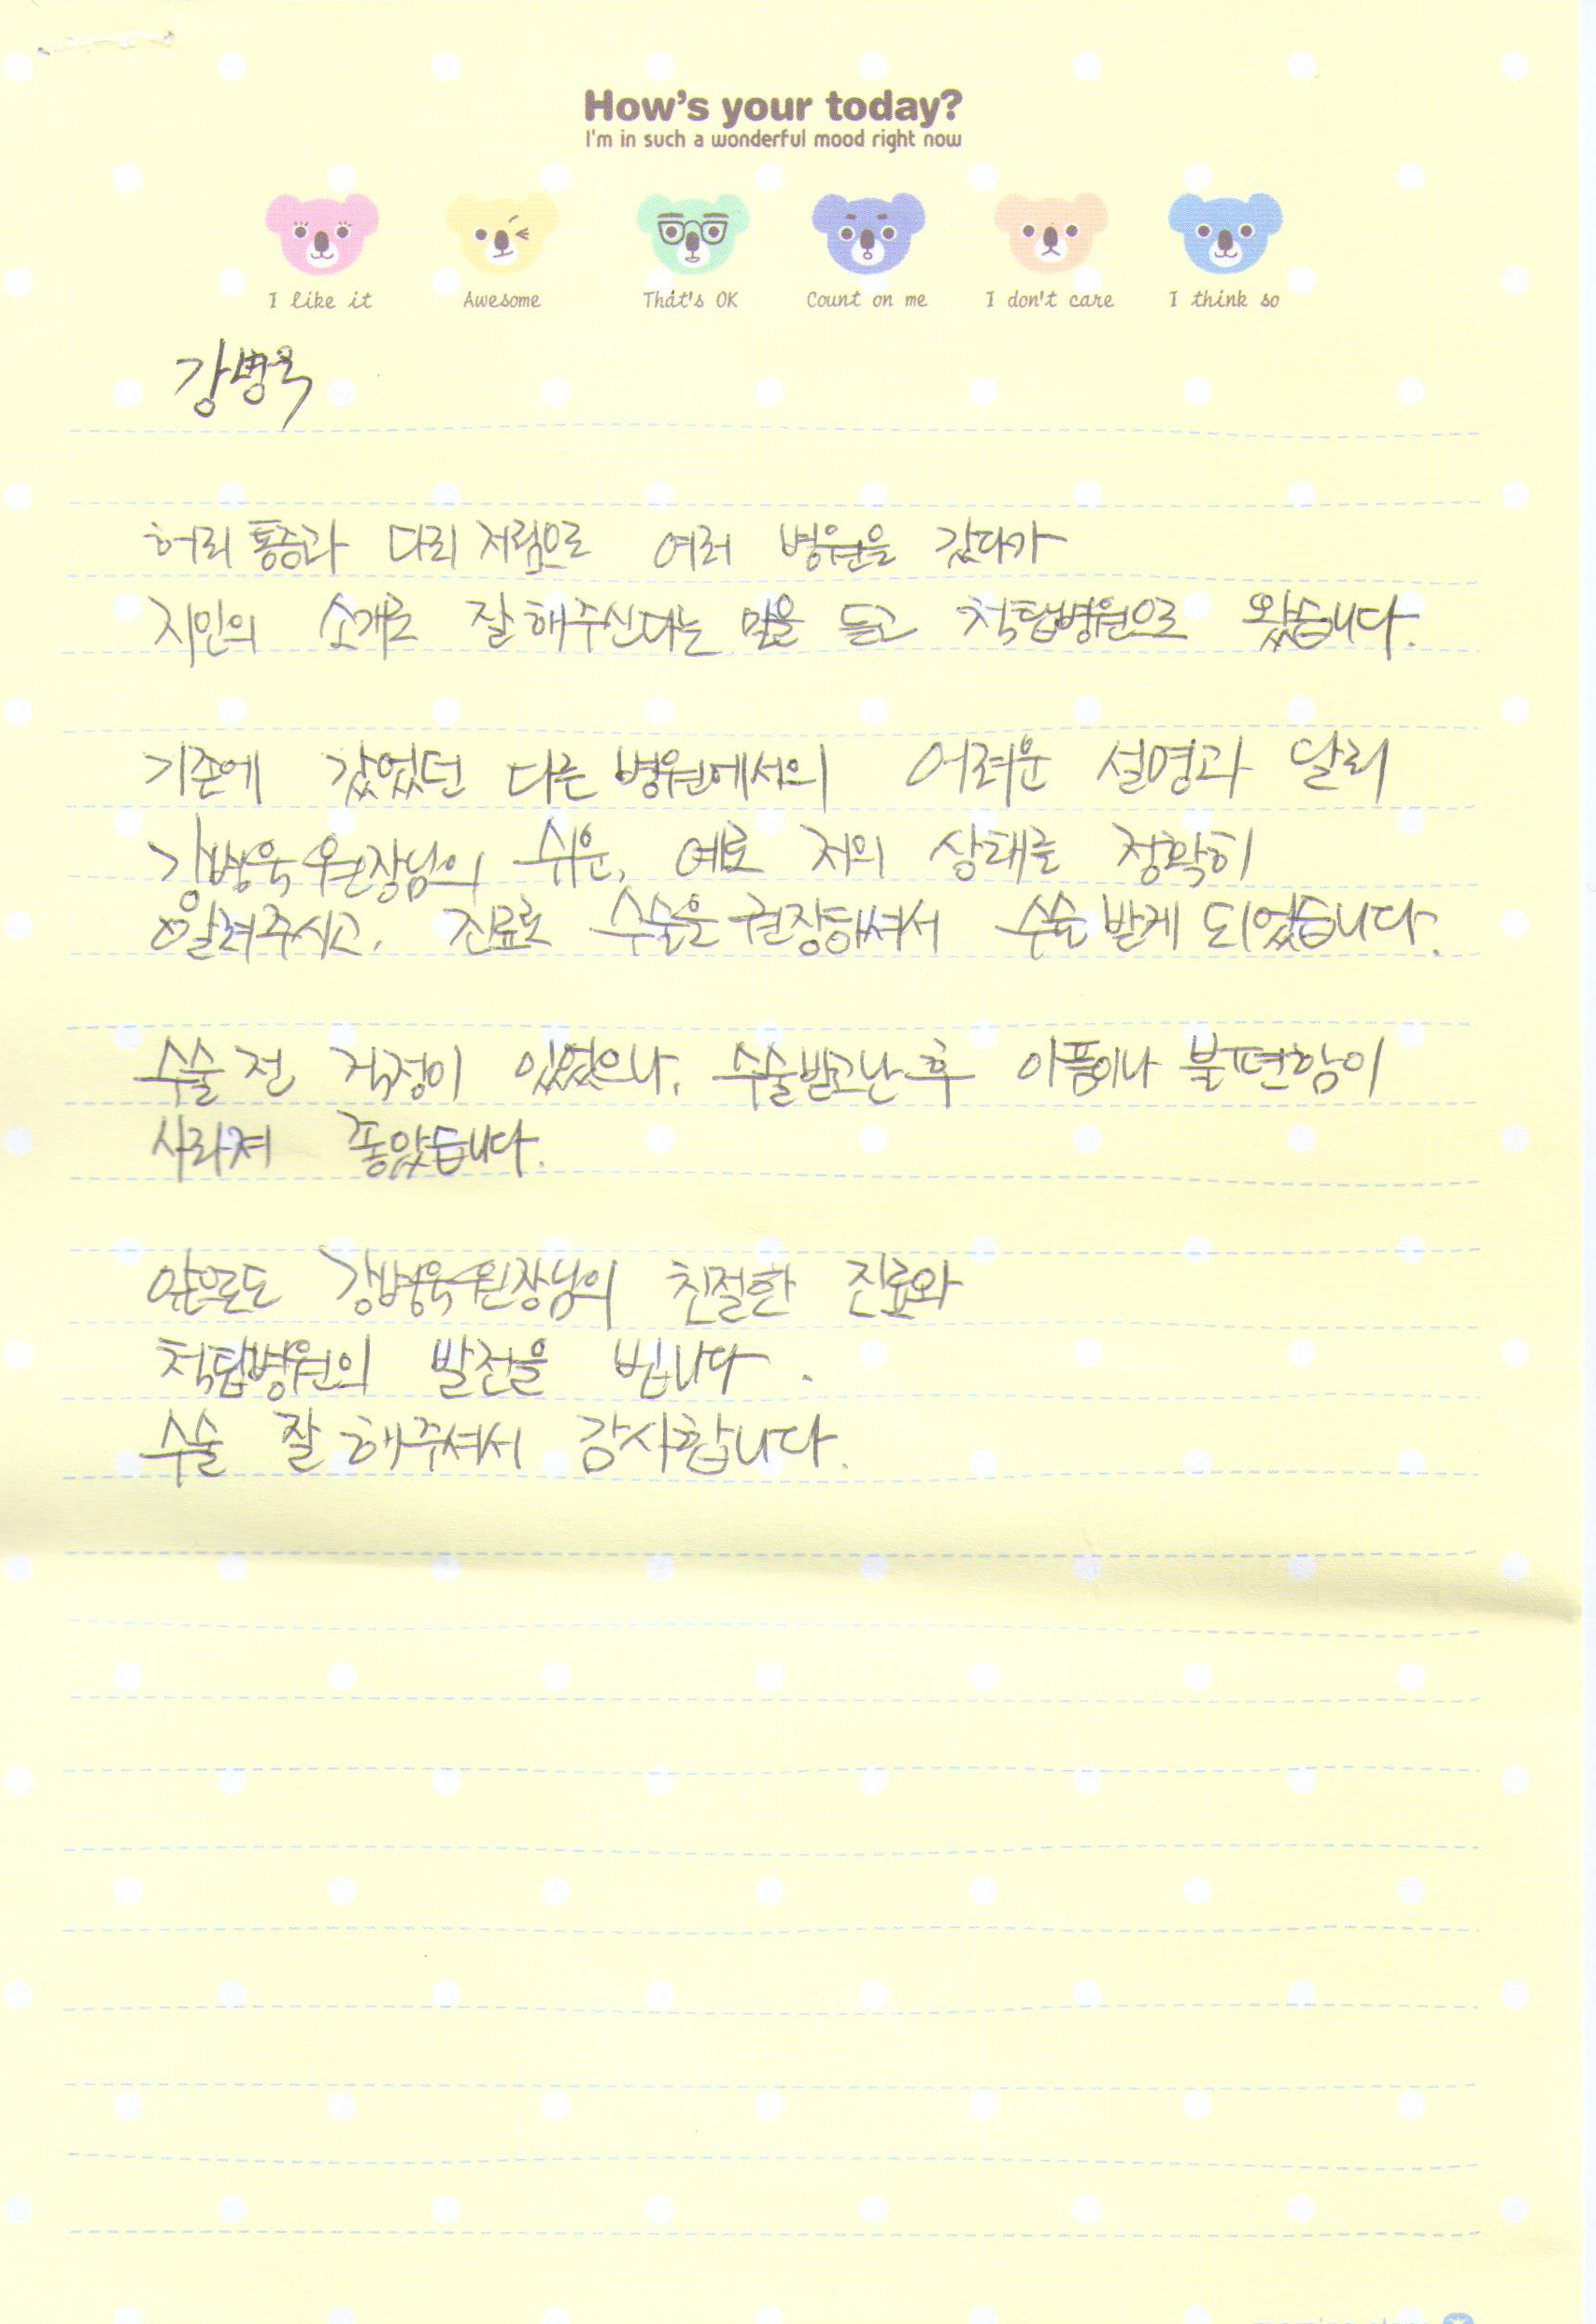 How's your today?
I'm in such a wonderful mood right now
I like it Awesome That's OK Count on me I don't care I think so
강병욱
허리 통증과 다리 저림으로 여러 병원을 갔다가
지인의 소개로 잘해주신다는 말을 듣고 척탑병원으로 왔습니다.
기존에 갔었던 다른 병원에서의 어려운 설명과 달리
강병욱원장님의 쉬운, 예로 저의 상태를 정확히
알려주시고, 진료로 수술을 권장하셔서 수술 받게 되었습니다.
수술 전 걱정이 있었으나, 수술받고난 후 아픔이나 불편함이
사라져 좋았습니다.
앞으로도 강병욱원장님의 친절한 진료와
척탑병원의 발전을 빕니다.
수술 잘 해주셔서 감사합니다.